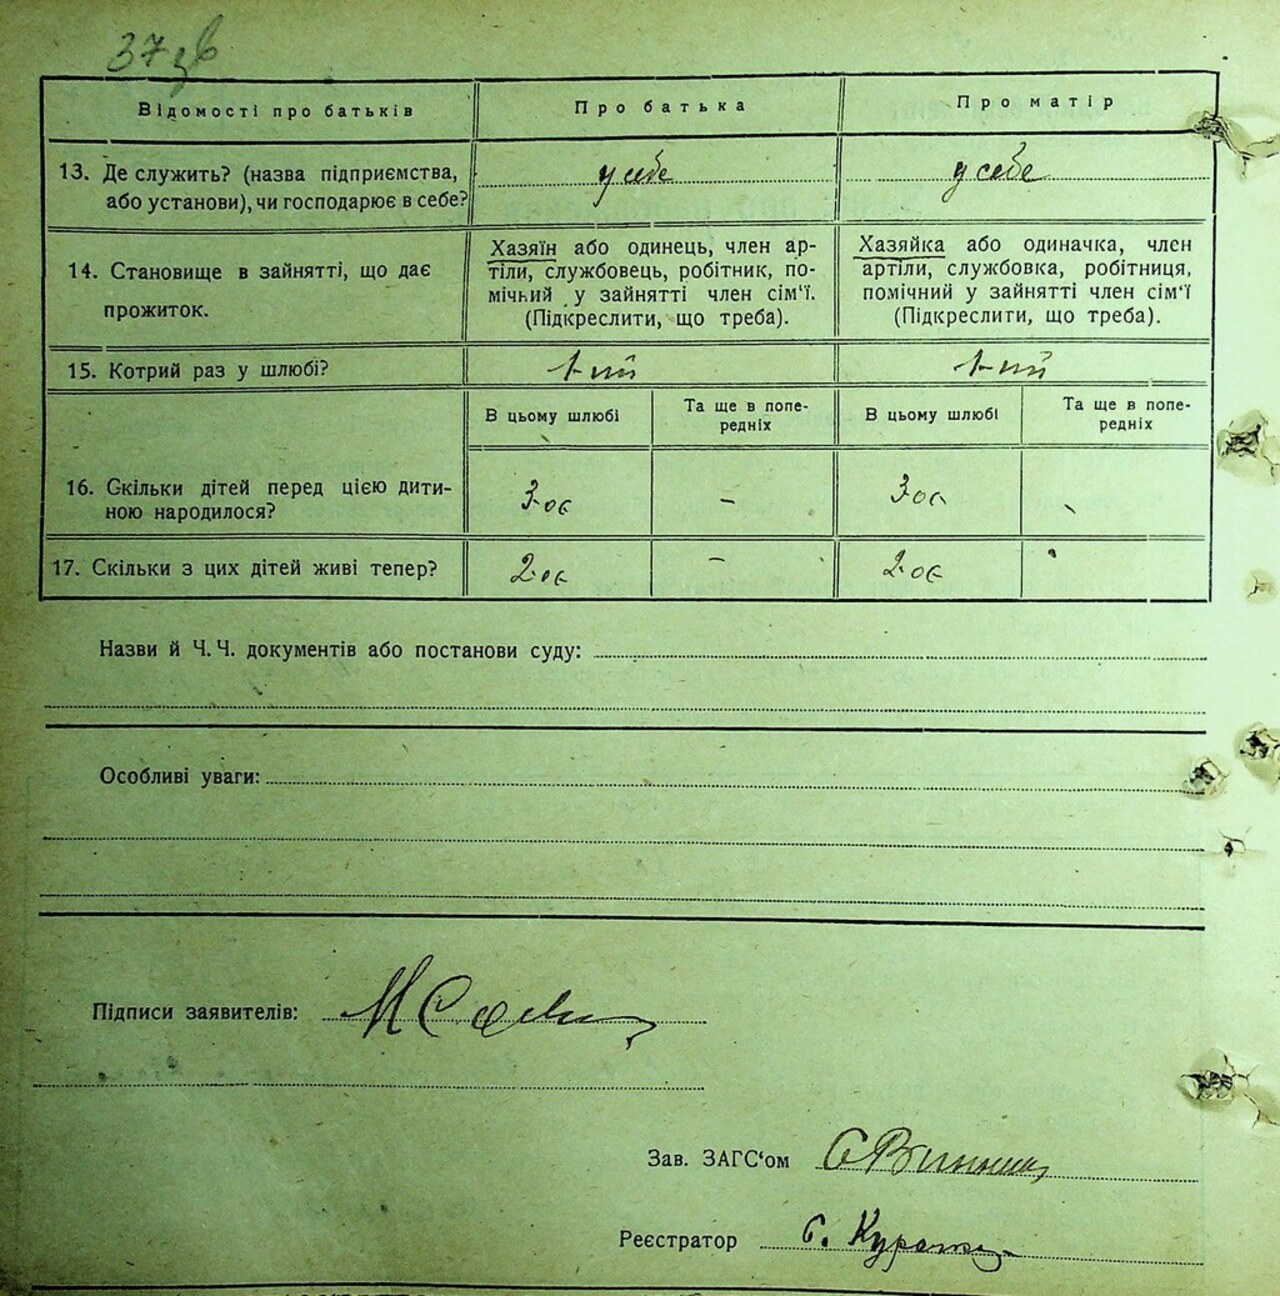 37 зв
Відомості про батьків
Про батька
Про матір
13. Де служить? (назва підприємства,
або установи), чи господарює в себе?
у себе
у себе
14. Становище в зайнятті, що дає
прожиток.
Хазяїн або одинець, член ар-
тіли, службовець, робітник, по-
мічний у зайнятті член сім'ї.
(Підкреслити, що треба).
Хазяйка або одиначка, член
артіли, службовка, робітниця,
помічний у зайнятті член сім'ї
(Підкреслити, що треба).
15. Котрий раз у шлюбі?
1-ий
1-ий
В цьому шлюбі
Та ще в попе-
редніх
В цьому шлюбі
Та ще в попе-
редніх
16. Скільки дітей перед цією дити-
ною народилося?
3-ое
-
3-ое
17. Скільки з цих дітей живі тепер?
2-ое
-
2-ое
Назви й Ч. Ч. документів або постанови суду:
Особливі уваги:
Підписи заявителів:
Зав. ЗАГС'ом
Реєстратор